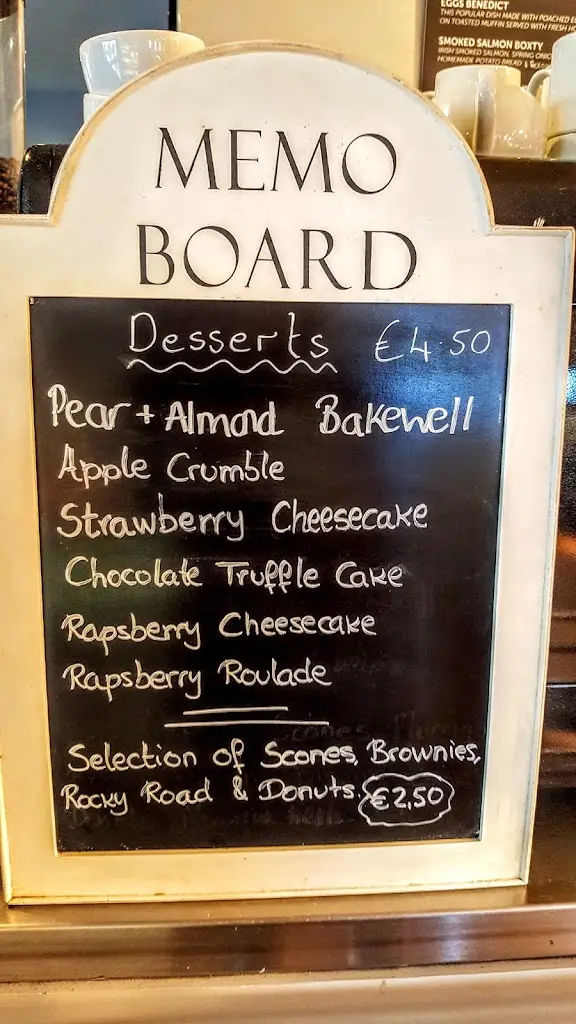 EGGS BENEDICT
THIS POPULAR DISH MADE WITH POACHED
ON TOASTED MUFFIN SERVED WITH FRESH
SMOKED SALMON BOXTY
IRISH SMOKED SALMON, SPRING
HOMEMADE POTATO BREAD
MEMO
BOARD
Desserts €4.50
Pear + Almond Bakewell
Apple Crumble
Strawberry Cheesecake
Chocolate Truffle Cake
Rapsberry Cheesecake
Rapsberry Roulade
Selection of Scones, Brownies,
Rocky Road & Donuts. €2,50